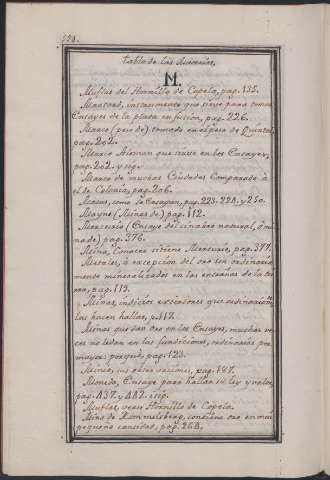 Tabla de las Materias.
M.
Muflas del Hornillo de Copela, pag. 135.
instrumento que sirve para tomar
Ensayes de la plata en fusion, pag. 226.
Marco (peso de) tomado en el peso de Quintal,
pag. 202.
Marco Aleman que sirve en los Ensayes,
pag. 202. y sig.
Marco de muchas Ciudades Comparado à
el de Colonia, pag. 206.
como se Ensayan, pag. 223. 224. y 250.
(Minas de) pag. 112.
Mercurio (Ensaye del cinabrio natural, ò mi
na de) pag. 376.
Mina, Conocer si tiene Mercurio, pag. 377.
Metales, à excepcion del oro son ordinaria
mente mineralizados en las entrañas de la tie
rra, pag. 113.
Minas, indicios exteriores que ordinariam.te
las hacen hallar, p. 117.
Minas que dan Oro en los Ensayes, muchas ve
ces no le dan en las fundiciones, ordinarias por
mayor: porqué, pag. 123.
pag. 187.
Moneda, Ensaye para hallar su ley y valor,
pag. 437. y 442. sig.
Muflas, vease Hornillo de Copela.
Mina de Rammelsberg, contiene oro en muy
pequeña cantidad, pag. 264.